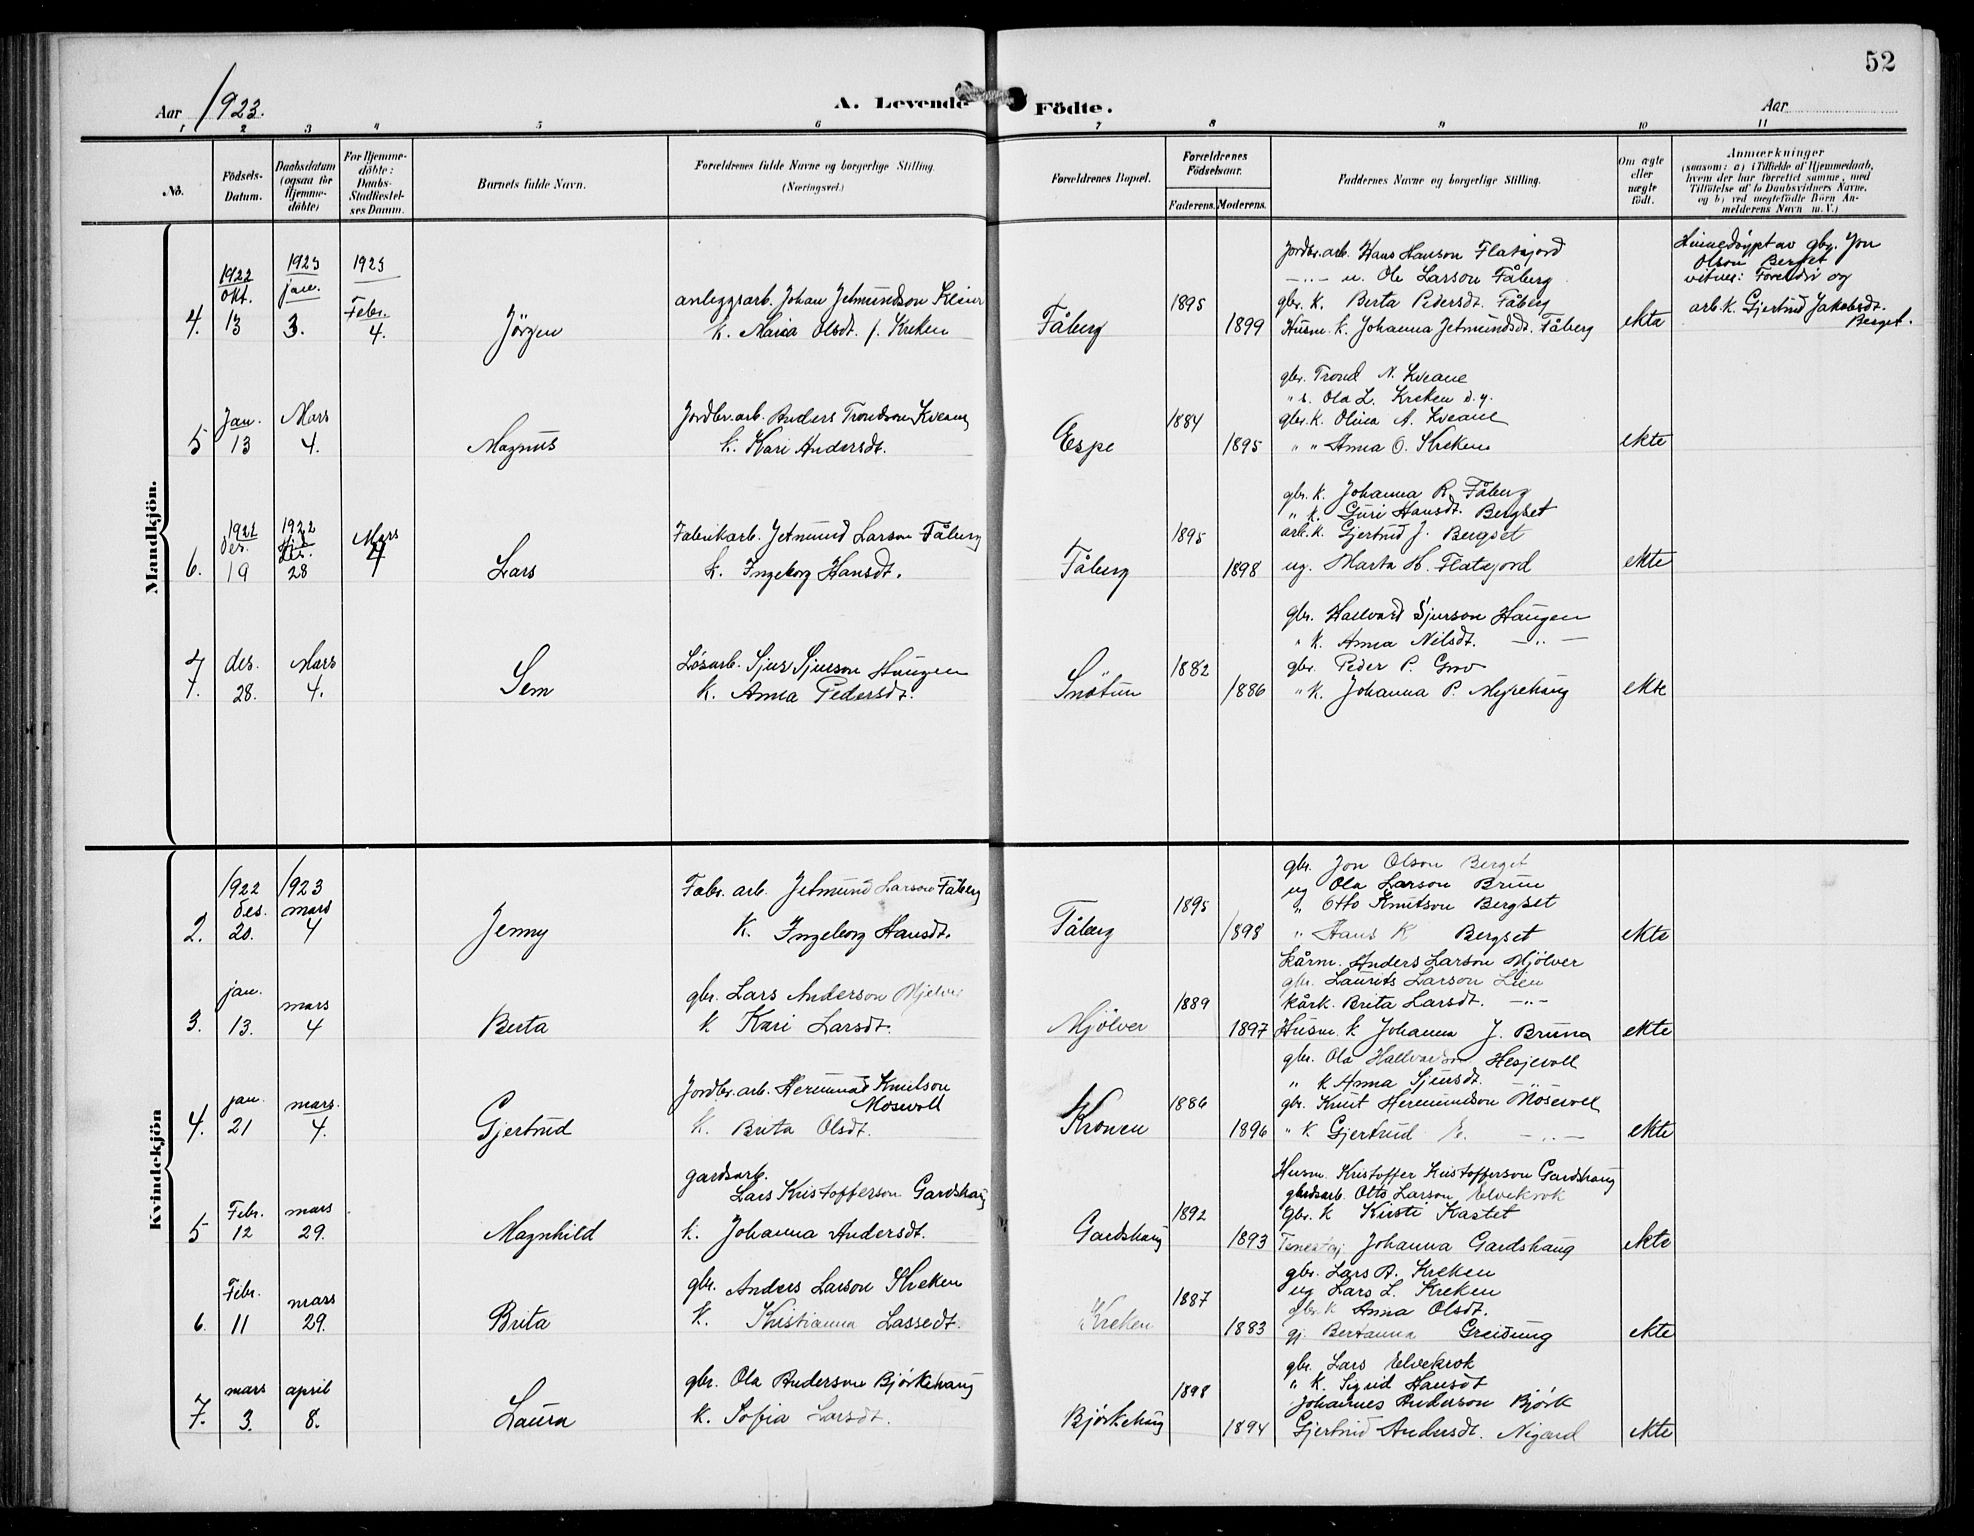 52
Aar 1923.
A. Levende Födte.
Aar
1 2 3 4 5 6 7 8 9 10 11
No.
Födsels-Datum.
Daabsdatum (ogsaa for Hjemme-döbte)
For Hjemme-döbte: Daabs-Stadfæstel-ses Datum.
Barnets fulde Navn.
Forældrenes fulde Navne og borgerlige Stilling (Næringsvei.)
Forældrenes Bopæl.
Forældrenes Födselsaar.
Faderens. Moderens.
Faddernes Navne og borgerlige Stilling.
Om ægte eller uægte födt.
Anmærkninger
(saasom: a) i Tilfælde af Hjemmedaab,
hvem der har forrettet samme, med
Tilföielse af to Daabsvidners Navne,
og b) ved uegtefödte Börn An-
melderens Navn m. V.)
Mandkjön.
4.
1922 okt. 13
1923 jan. 3.
1923 Febr. 4.
Jörgen
anleggsarb. Johan Jetmundson
k. Maria Olsdt. f. Kreken
Fåberg
1895
1899
Jordbr.arb. Hans Hanson Flatejord
—„— u. Ole Larson Fåberg
gbr. k. Berta Pedersdt. Fåberg
Husm. k. Johanna Jetmundsdt. Fåberg
ekta
Himedöypt av gbr. Jon
Olson Berget
vitner: Foreldri og
arb. k. Gjertrud Jakobsdt.
Berget.
5
Jan. 13
Mars 4.
Magnus
Jordbr.arb. Anders Trondson Kveane
k. Kari Andersdt.
Espe
1884
1895
gbr. Trond N. Kveane
" s. Ola L. Kreken d.y.
gbr. k. Olina A. Kveane
" " Anna O. Kreken
ekte
6.
1922 Des. 19
1922 Des. 28
Mars 4
Lars
Fabrikarb. Jetmund Larson Fåberg
k. Ingeborg Hansdt.
Fåberg
1895
1898
gbr. k. Johanna R. Fåberg
" k. Guri Hansdt. Bergset
arb. k. Gjertrud J. Bergset
ug. Marta H. Flatejord
ekte
7.
des. 28.
Mars 4.
Sem
Lösarb. Sjur Sjurson Haugen
k. Anna Pedersdt.
Snötun
1882
1886
gbr. Hallvard Sjurson Haugen
" k. Anna Nilsdt. —„—
gbr. Peder P. Grov
" k. Johanna P. Myrehaug
ekte
Kvindekjön
2.
1922 des. 20.
1923 mars 4
Jenny
Fabr. arb. Jetmund Larson Fåberg
k. Ingeborg Hansdt.
Fåberg
1895
1898
gbr. Jon Olson Berget
ug Ola Larson Brun
" Otto Knutson Bergset
" Hans K Bergset
ekte
3.
jan. 13.
mars 4
Berta
gbr. Lars Anderson Mjelver
k Kari Larsdt.
Mjölver
1889
1897
kårm. Anders Larson Mjölver
gbr. Laurits Larson Lien
kårk. Brita Larsdt. —„—
Husm. k Johanna J. Bruna
ekte
4.
jan. 21
mars. 4.
Gjertrud
Jordbr. arb. Hermund Knutson
Mosevoll
k. Brita Olsdt.
Kronen
1886
1896
gbr. Ola Hallvarson Hesjevoll
" k Anna Sjursdt.
gbr. Knut Hermundson Mosevol
" k Gjertrud E. —„—
ekte
5
Febr. 12
mars 29.
Magnhild
gardsarb.
Lars Kristofferson Gardshaug
k. Johanna Andersdt.
Gardshaug
1892
1893
Husm. Kristoffer Kristofferson Gardshaug
gardsarb. Otto Larson Elvekrok
gbr. k Kirsti Kastet
Johanna Gardshaug
ekte
6.
Febr. 11
mars 29.
Brita
gbr. Anders Larson Kreken
k. Kristianna Lassedt.
Kreken
1887
1883
gbr. Lars A. Kreken
ug Lars L. Kreken
gbr. k Anna Olsdt.
gj. Bertanna Greidung
ekte
7.
mars 3.
april 8.
Laura
gbr. Ola Anderson Björkehaug
k. Sofia Larsdt.
Björkehaug
1898
1894
gbr. Lars Elvekrok
" k. Sigrid Hansdt
Johannes Anderson Björk
Gjertrud Andersdt. Nigard
ekte